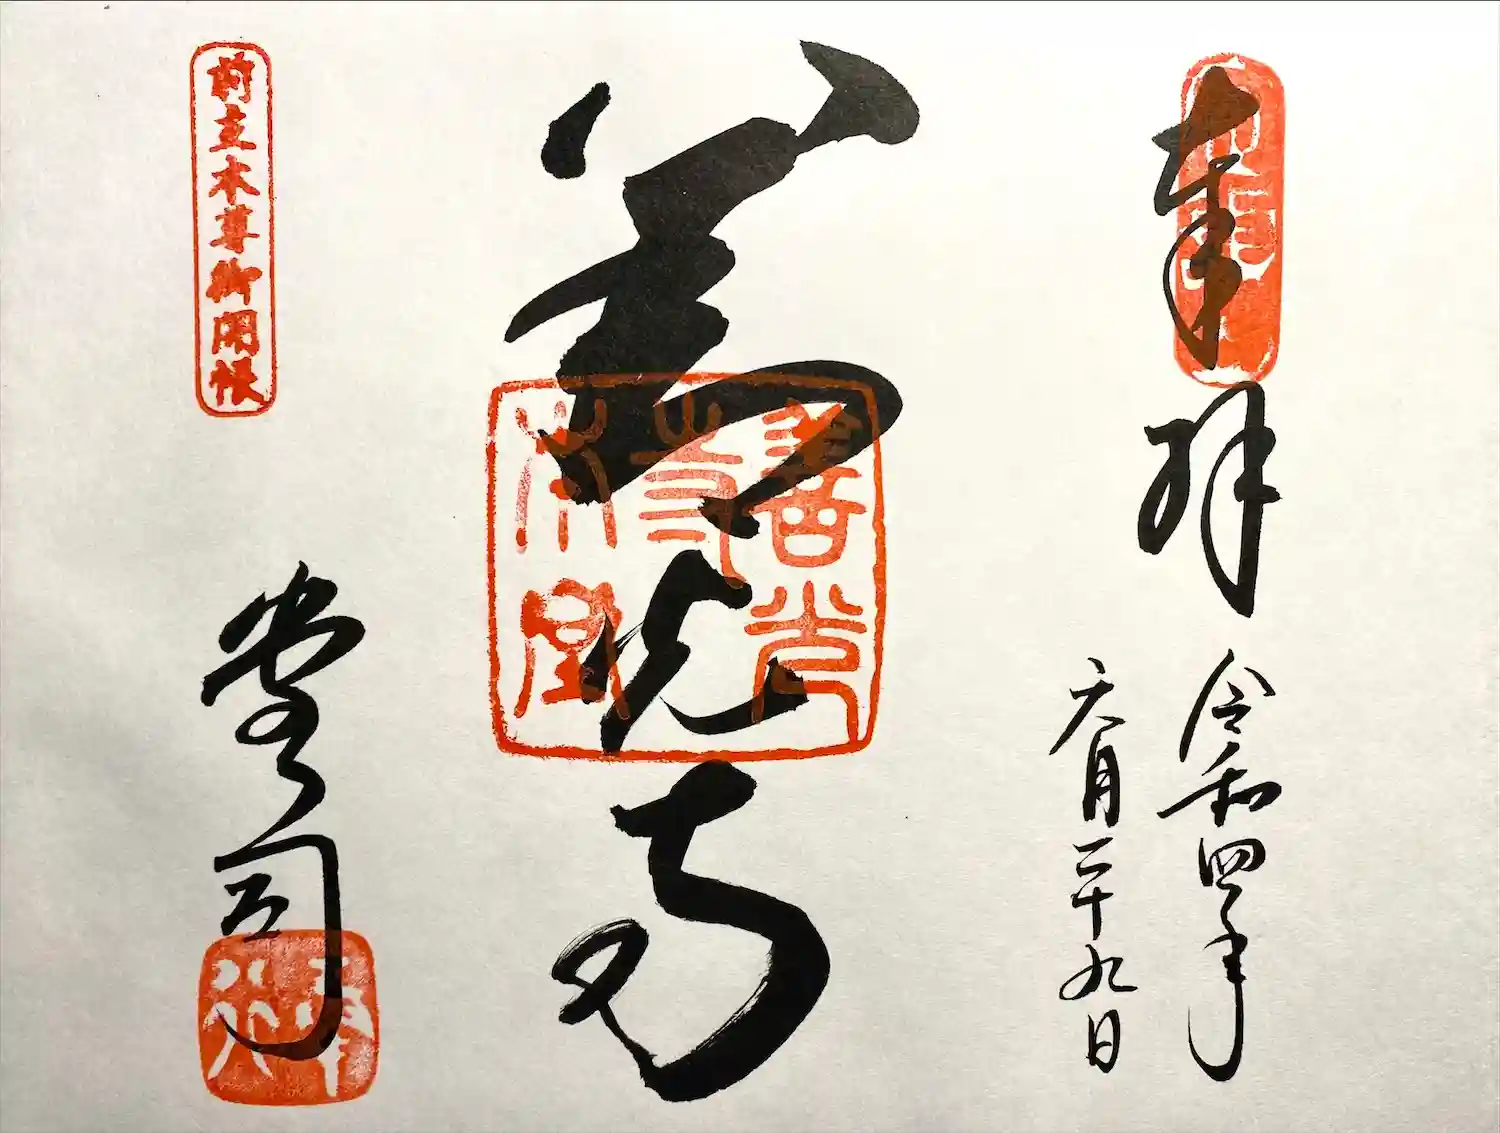 奉拝
令和四年
六月二十九日
善光寺
善光寺
前立本尊御開帳
堂司